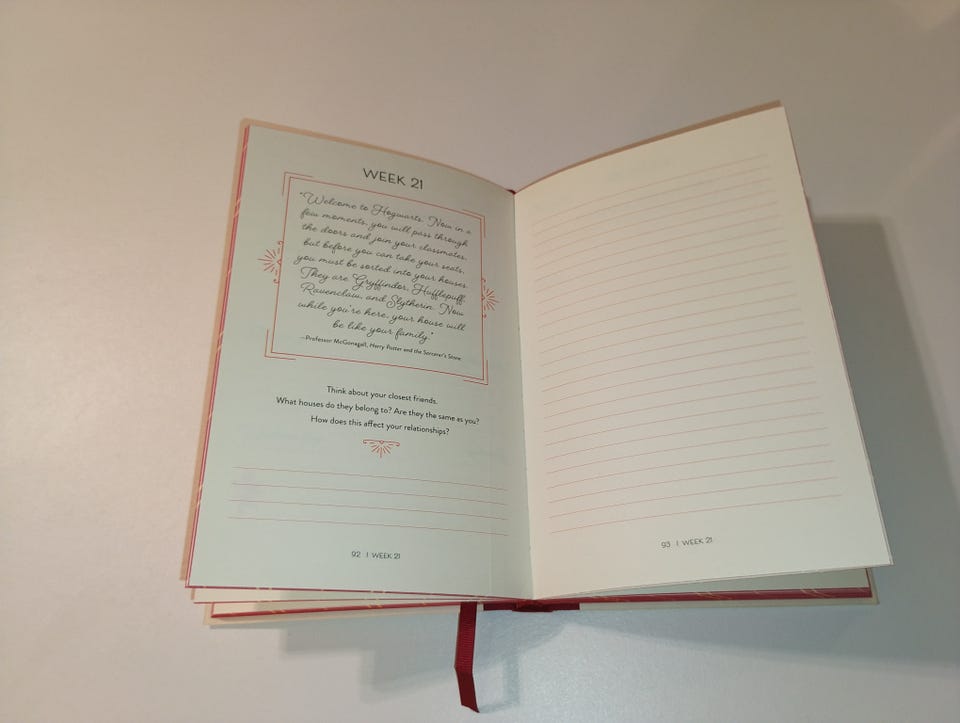 WEEK 21
"Welcome to Hogwarts. Now in a
few moments, you will pass through
the doors and join your classmates,
but before you can take your seats,
you must be sorted into your houses.
They are Gryffindor, Hufflepuff,
Ravenclaw, and Slytherin. Now
while you're here, your house will
be like your family."
—Professor McGonagall, Harry Potter and the Sorcerer's Stone
Think about your closest friends.
What houses do they belong to? Are they the same as you?
How does this affect your relationships?
92 | WEEK 21
93 | WEEK 21